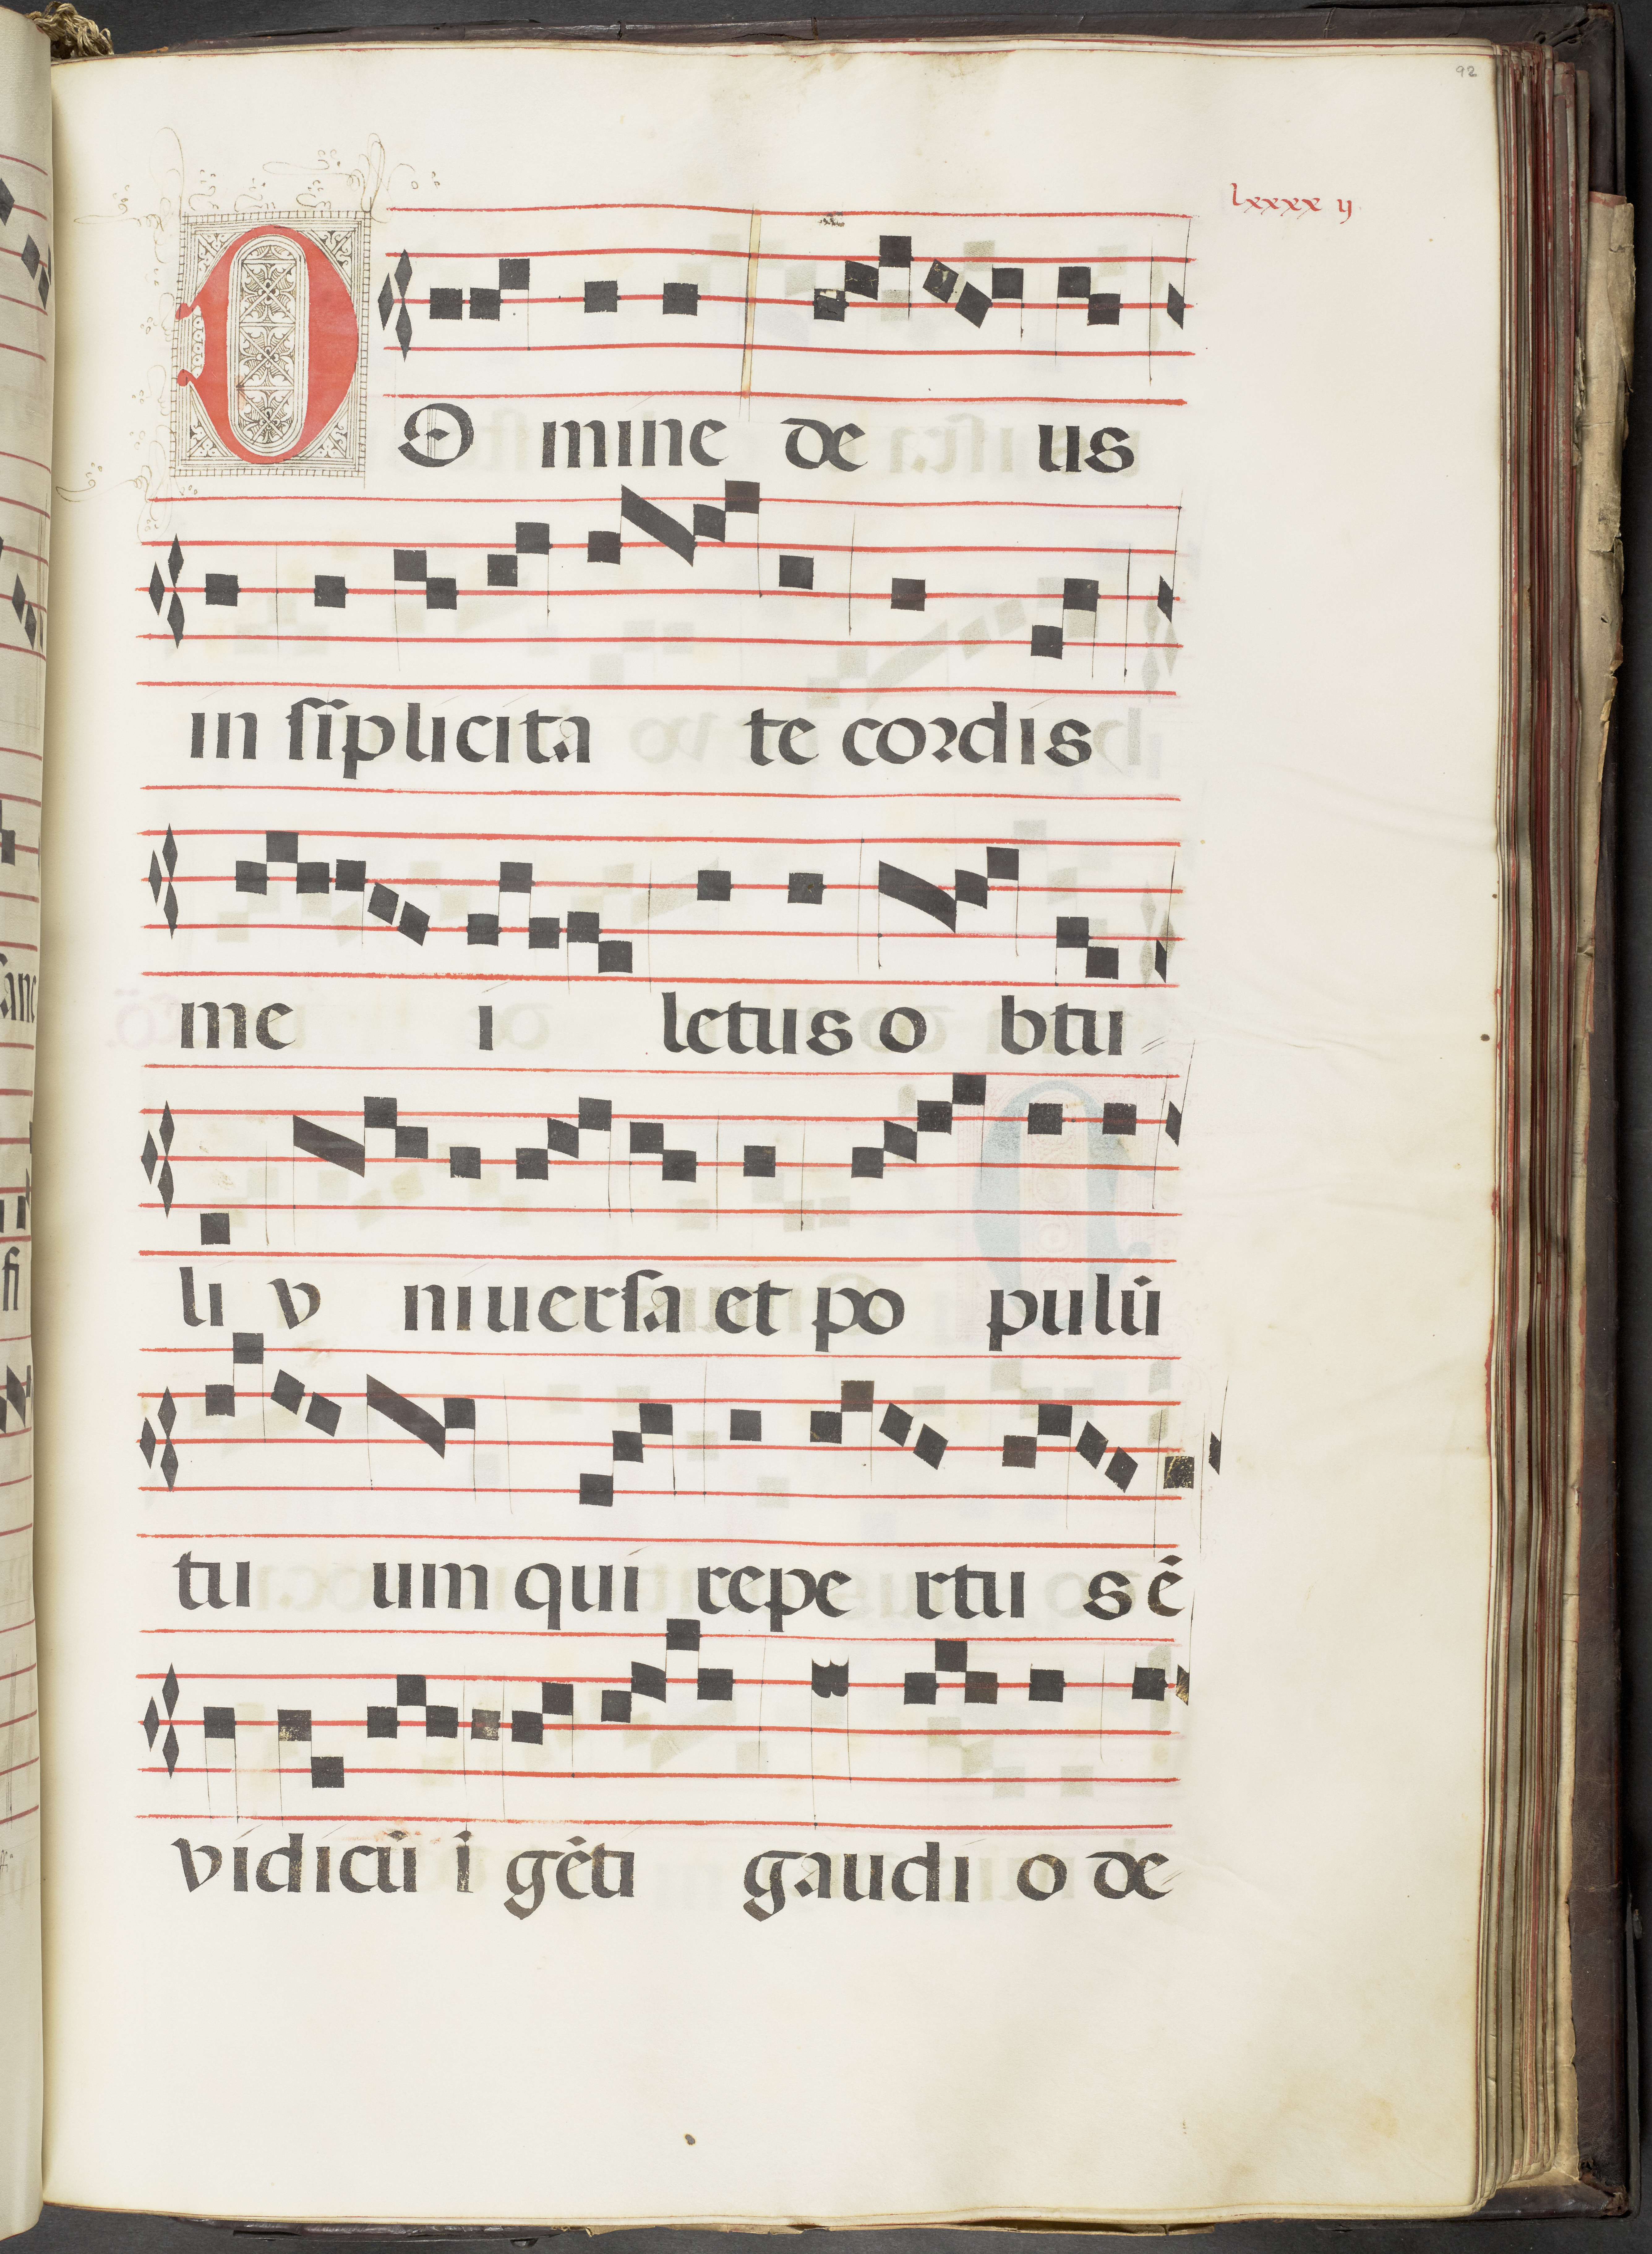 92
lxxxx ij
DOmine de us
in sĩplicita te cordis
me i letus o btu
li v niuersa et po pulũ
tu um qui repe rtu s ẽ
vidi cũ ĩ gẽti gaudi o de